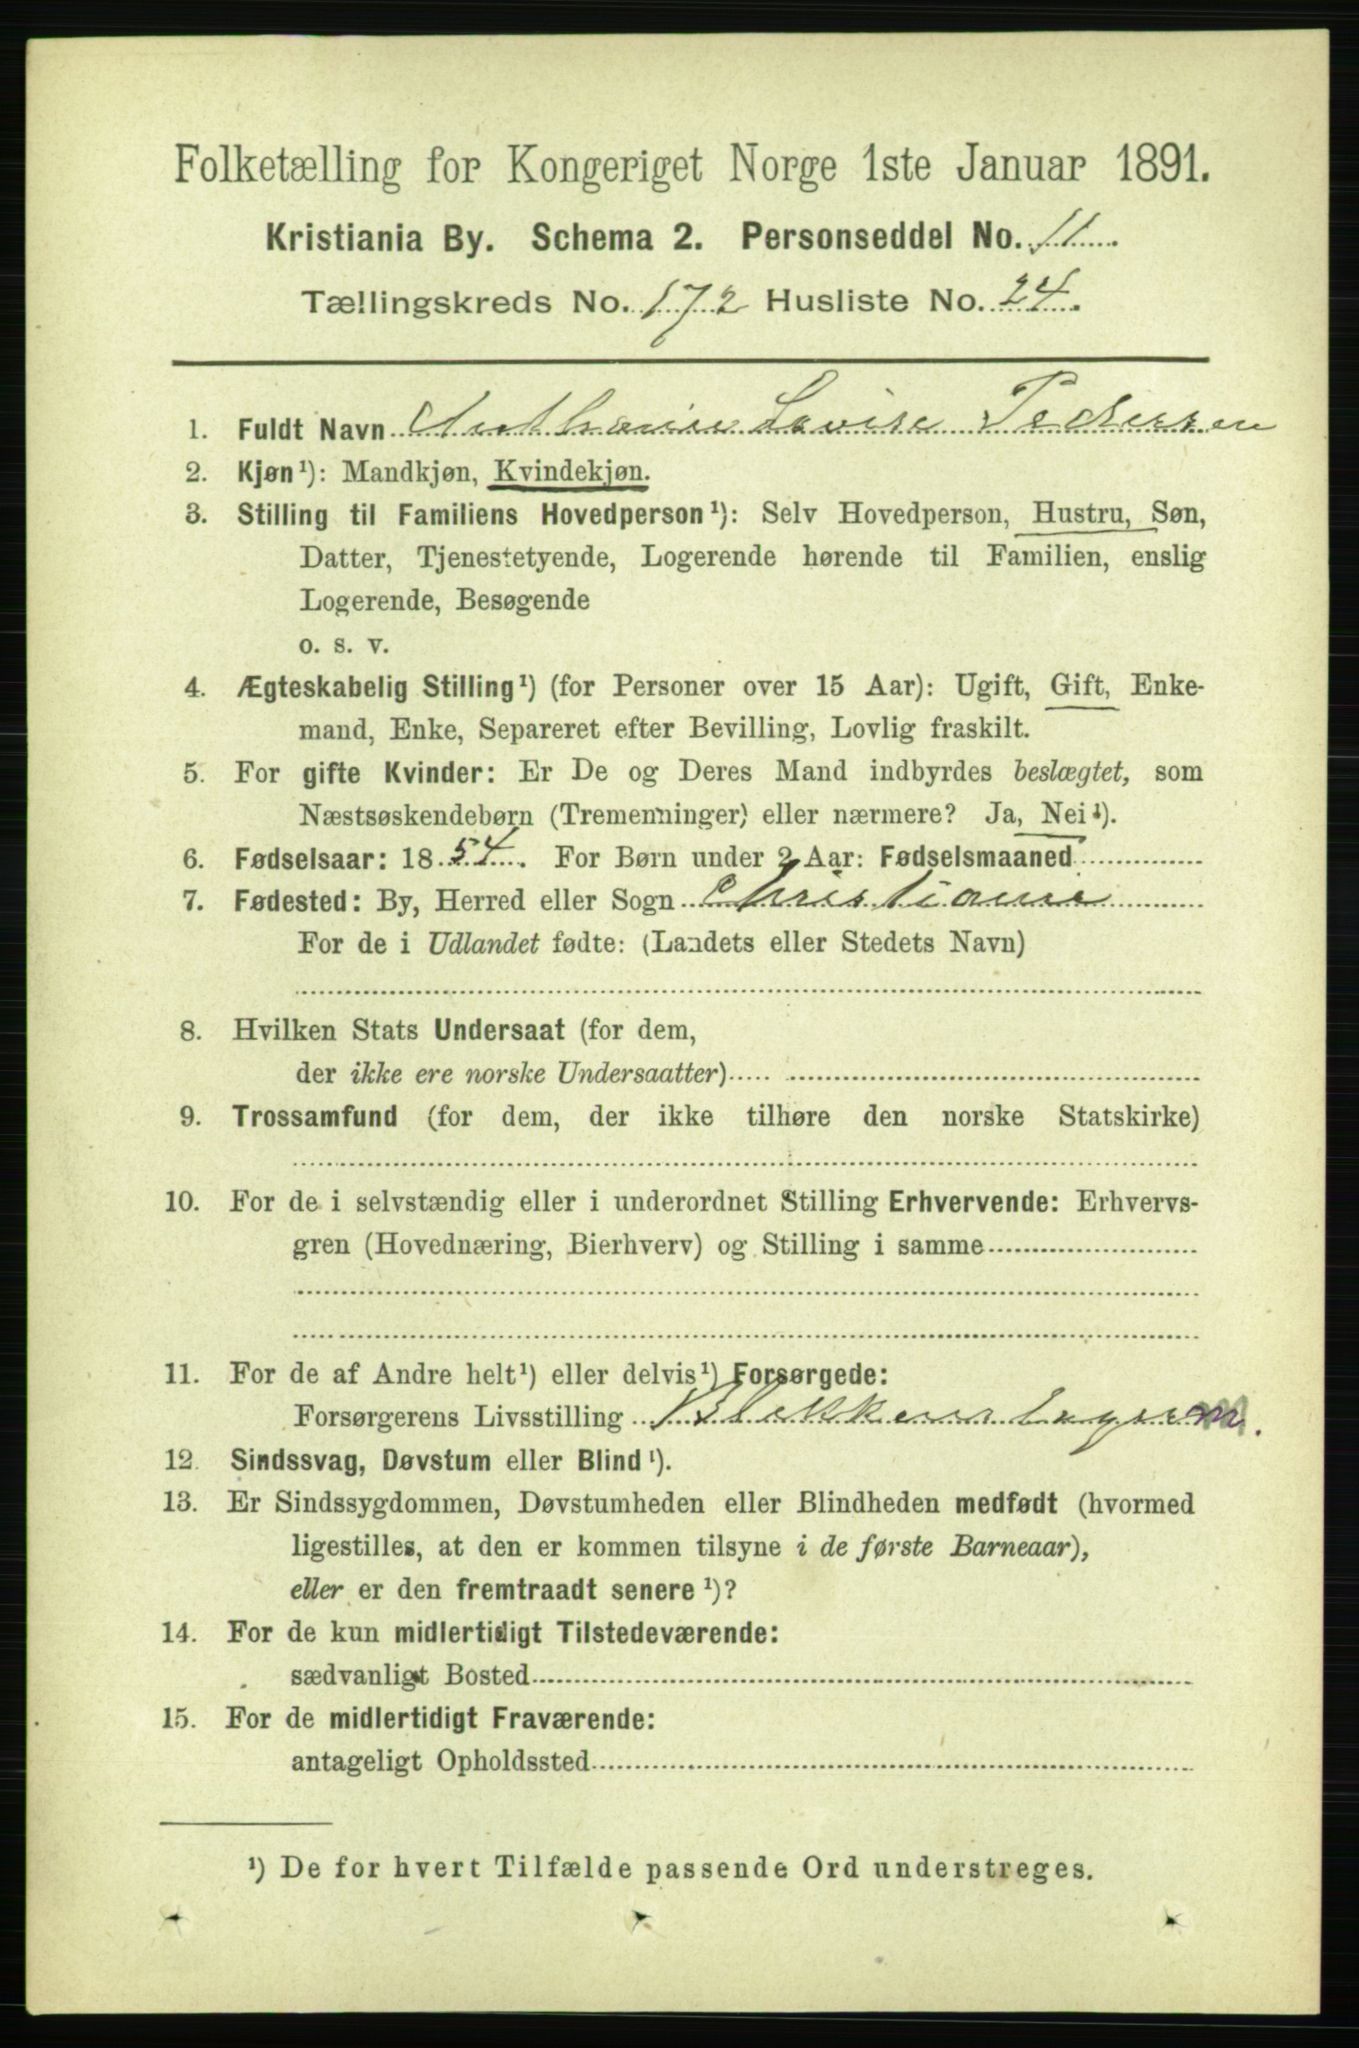 Folketælling for Kongeriget Norge 1ste Januar 1891.
Kristiania By. Schema 2. Personseddel No. 11.
Tællingskreds No. 172 Husliste No. 24.
1. Fuldt Navn Lovise Pedersen
2. Kjøn¹): Mandkjøn, Kvindekjøn.
3. Stilling til Familiens Hovedperson¹): Selv Hovedperson, Hustru, Søn,
Datter, Tjenestetyende, Logerende hørende til Familien, enslig
Logerende, Besøgende
o. s. v.
4. Ægteskabelig Stilling¹) (for Personer over 15 Aar): Ugift, Gift, Enke-
mand, Enke, Separeret efter Bevilling, Lovlig fraskilt.
5. For gifte Kvinder: Er De og Deres Mand indbyrdes beslægtet, som
Næstsøskendebørn (Tremenninger) eller nærmere? Ja, Nei¹).
6. Fødselsaar: 1854. For Børn under 2 Aar: Fødselsmaaned
7. Fødested: By, Herred eller Sogn Christiania
For de i Udlandet fødte: (Landets eller Stedets Navn)
8. Hvilken Stats Undersaat (for dem,
der ikke ere norske Undersaatter)
9. Trossamfund (for dem, der ikke tilhøre den norske Statskirke)
10. For de i selvstændig eller i underordnet Stilling Erhvervende: Erhvervs-
gren (Hovednæring, Bierhverv) og Stilling i samme
11. For de af Andre helt¹) eller delvis¹) Forsørgede:
Forsørgerens Livsstilling
12. Sindssvag, Døvstum eller Blind¹).
13. Er Sindssygdommen, Døvstumheden eller Blindheden medfødt (hvormed
ligestilles, at den er kommen tilsyne i de første Barneaar),
eller er den fremtraadt senere¹)?
14. For de kun midlertidigt Tilstedeværende:
sædvanligt Bosted
15. For de midlertidigt Fraværende:
antageligt Opholdssted
¹) De for hvert Tilfælde passende Ord understreges.